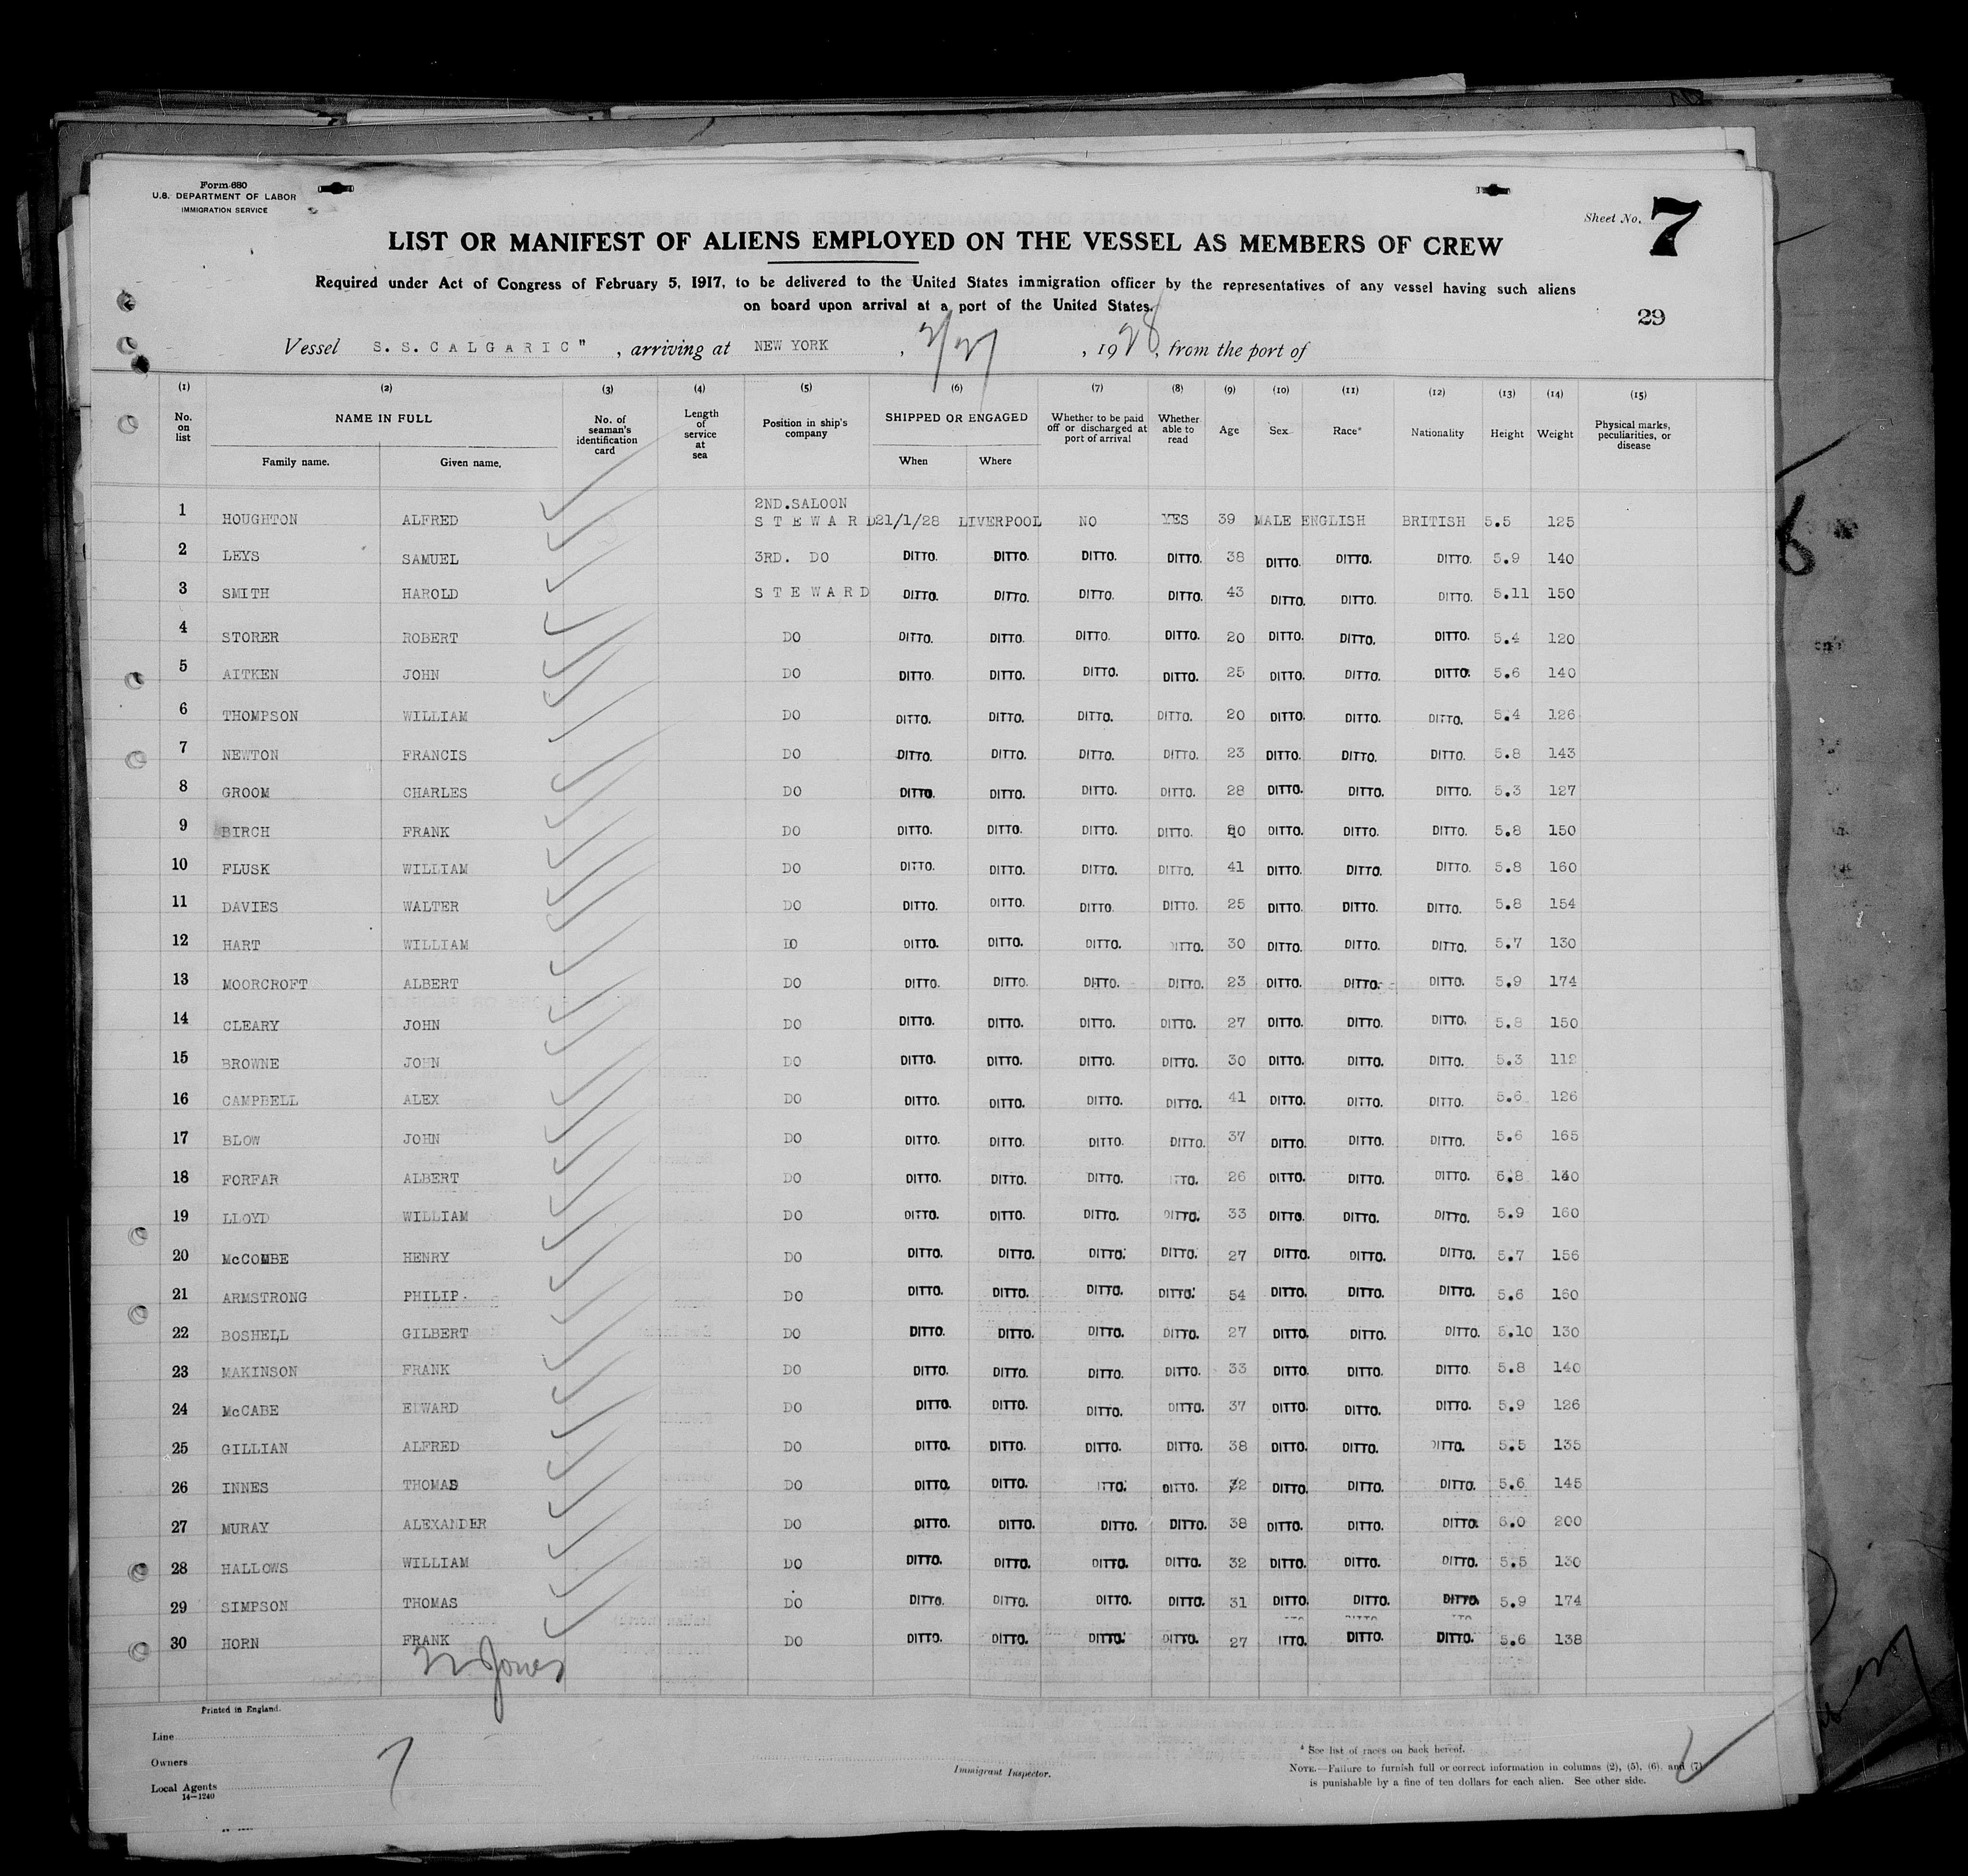 Form 680
U.S. DEPARTMENT OF LABOR
IMMIGRATION SERVICE
Sheet No. 7
LIST OR MANIFEST OF ALIENS EMPLOYED ON THE VESSEL AS MEMBERS OF CREW
Required under Act of Congress of February 5, 1917, to be delivered to the United States immigration officer by the representatives of any vessel having such aliens
on board upon arrival at a port of the United States.
29
Vessel S.S.CALGARIC" , arriving at NEW YORK , 2/27 , 1928, from the port of
(1) (2) (3) (4) (5) (6) (7) (8) (9) (10) (11) (12) (13) (14) (15)
No. on list NAME IN FULL No. of seaman's identification card Length of service at sea Position in ship's company SHIPPED OR ENGAGED Whether to be paid off or discharged at port of arrival Whether able to read Age Sex Race* Nationality Height Weight Physical marks, peculiarities, or disease
Family name. Given name. When Where
2ND.SALOON
1 HOUGHTON ALFRED STEWARD 21/1/28 LIVERPOOL NO YES 39 MALE ENGLISH BRITISH 5.5 125
2 LEYS SAMUEL 3RD. DO DITTO. DITTO. DITTO. DITTO. 38 DITTO. DITTO. DITTO. 5.9 140
3 SMITH HAROLD STEWARD DITTO. DITTO. DITTO. DITTO. 43 DITTO. DITTO. DITTO. 5.11 150
4 STORER ROBERT DO DITTO. DITTO. DITTO. DITTO. 20 DITTO. DITTO. DITTO. 5.4 120
5 AITKEN JOHN DO DITTO. DITTO. DITTO. DITTO. 25 DITTO. DITTO. DITTO. 5.6 140
6 THOMPSON WILLIAM DO DITTO. DITTO. DITTO. DITTO. 20 DITTO. DITTO. DITTO. 5.4 126
7 NEWTON FRANCIS DO DITTO. DITTO. DITTO. DITTO. 23 DITTO. DITTO. DITTO. 5.8 143
8 GROOM CHARLES DO DITTO. DITTO. DITTO. DITTO. 28 DITTO. DITTO. DITTO. 5.3 127
9 BIRCH FRANK DO DITTO. DITTO. DITTO. DITTO. DITTO. DITTO. DITTO. 5.8 150
10 FLUSK WILLIAM DO DITTO. DITTO. DITTO. DITTO. 41 DITTO. DITTO. DITTO. 5.8 160
11 DAVIES WALTER DO DITTO. DITTO. DITTO. DITTO. 25 DITTO. DITTO. DITTO. 5.8 154
12 HART WILLIAM DO DITTO. DITTO. DITTO. DITTO. 30 DITTO. DITTO. DITTO. 5.7 130
13 MOORCROFT ALBERT DO DITTO. DITTO. DITTO. DITTO. 23 DITTO. DITTO. DITTO. 5.9 174
14 CLEARY JOHN DO DITTO. DITTO. DITTO. DITTO. 27 DITTO. DITTO. DITTO. 5.8 150
15 BROWNE JOHN DO DITTO. DITTO. DITTO. DITTO. 30 DITTO. DITTO. DITTO. 5.3 112
16 CAMPBELL ALEX DO DITTO. DITTO. DITTO. DITTO. 41 DITTO. DITTO. DITTO. 5.6 126
17 BLOW JOHN DO DITTO. DITTO. DITTO. DITTO. 37 DITTO. DITTO. DITTO. 5.6 165
18 FORFAR ALBERT DO DITTO. DITTO. DITTO. DITTO. 26 DITTO. DITTO. DITTO. 5.8 140
19 LLOYD WILLIAM DO DITTO. DITTO. DITTO. DITTO. 33 DITTO. DITTO. DITTO. 5.9 160
20 McCOMBE HENRY DO DITTO. DITTO. DITTO. DITTO. 27 DITTO. DITTO. DITTO. 5.7 156
21 ARMSTRONG PHILIP. DO DITTO. DITTO. DITTO. DITTO. 54 DITTO. DITTO. DITTO. 5.6 160
22 BOSHELL GILBERT DO DITTO. DITTO. DITTO. DITTO. 27 DITTO. DITTO. DITTO. 5.10 130
23 MAKINSON FRANK DO DITTO. DITTO. DITTO. DITTO. 33 DITTO. DITTO. DITTO. 5.8 140
24 McCABE EDWARD DO DITTO. DITTO. DITTO. DITTO. 37 DITTO. DITTO. DITTO. 5.9 126
25 GILLIAN ALFRED DO DITTO. DITTO. DITTO. DITTO. 38 DITTO. DITTO. DITTO. 5.5 135
26 INNES THOMAS DO DITTO. DITTO. DITTO. DITTO. 32 DITTO. DITTO. DITTO. 5.6 145
27 MURAY ALEXANDER DO DITTO. DITTO. DITTO. DITTO. 38 DITTO. DITTO. DITTO. 6.0 200
28 HALLOWS WILLIAM DO DITTO. DITTO. DITTO. DITTO. 32 DITTO. DITTO. DITTO. 5.5 130
29 SIMPSON THOMAS DO DITTO. DITTO. DITTO. DITTO. 31 DITTO. DITTO. DITTO. 5.9 174
30 HORN FRANK DO DITTO. DITTO. DITTO. DITTO. 27 DITTO. DITTO. DITTO. 5.6 138
Jones
Printed in England.
Line
Owners
Local Agents
14—1240
7
Immigrant Inspector.
* See list of races on back hereof.
NOTE.—Failure to furnish full or correct information in columns (2), (5), (6), and (7)
is punishable by a fine of ten dollars for each alien. See other side.